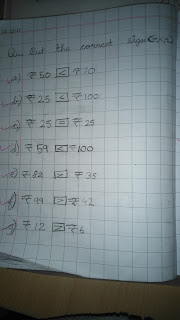 Qu. Put the correct sign (>,<,=)
a) ₹50 < ₹70
b) ₹25 < ₹100
c) ₹25 = ₹25
d) ₹59 < ₹100
e) ₹82 > ₹35
f) ₹99 > ₹42
g) ₹12 > ₹6